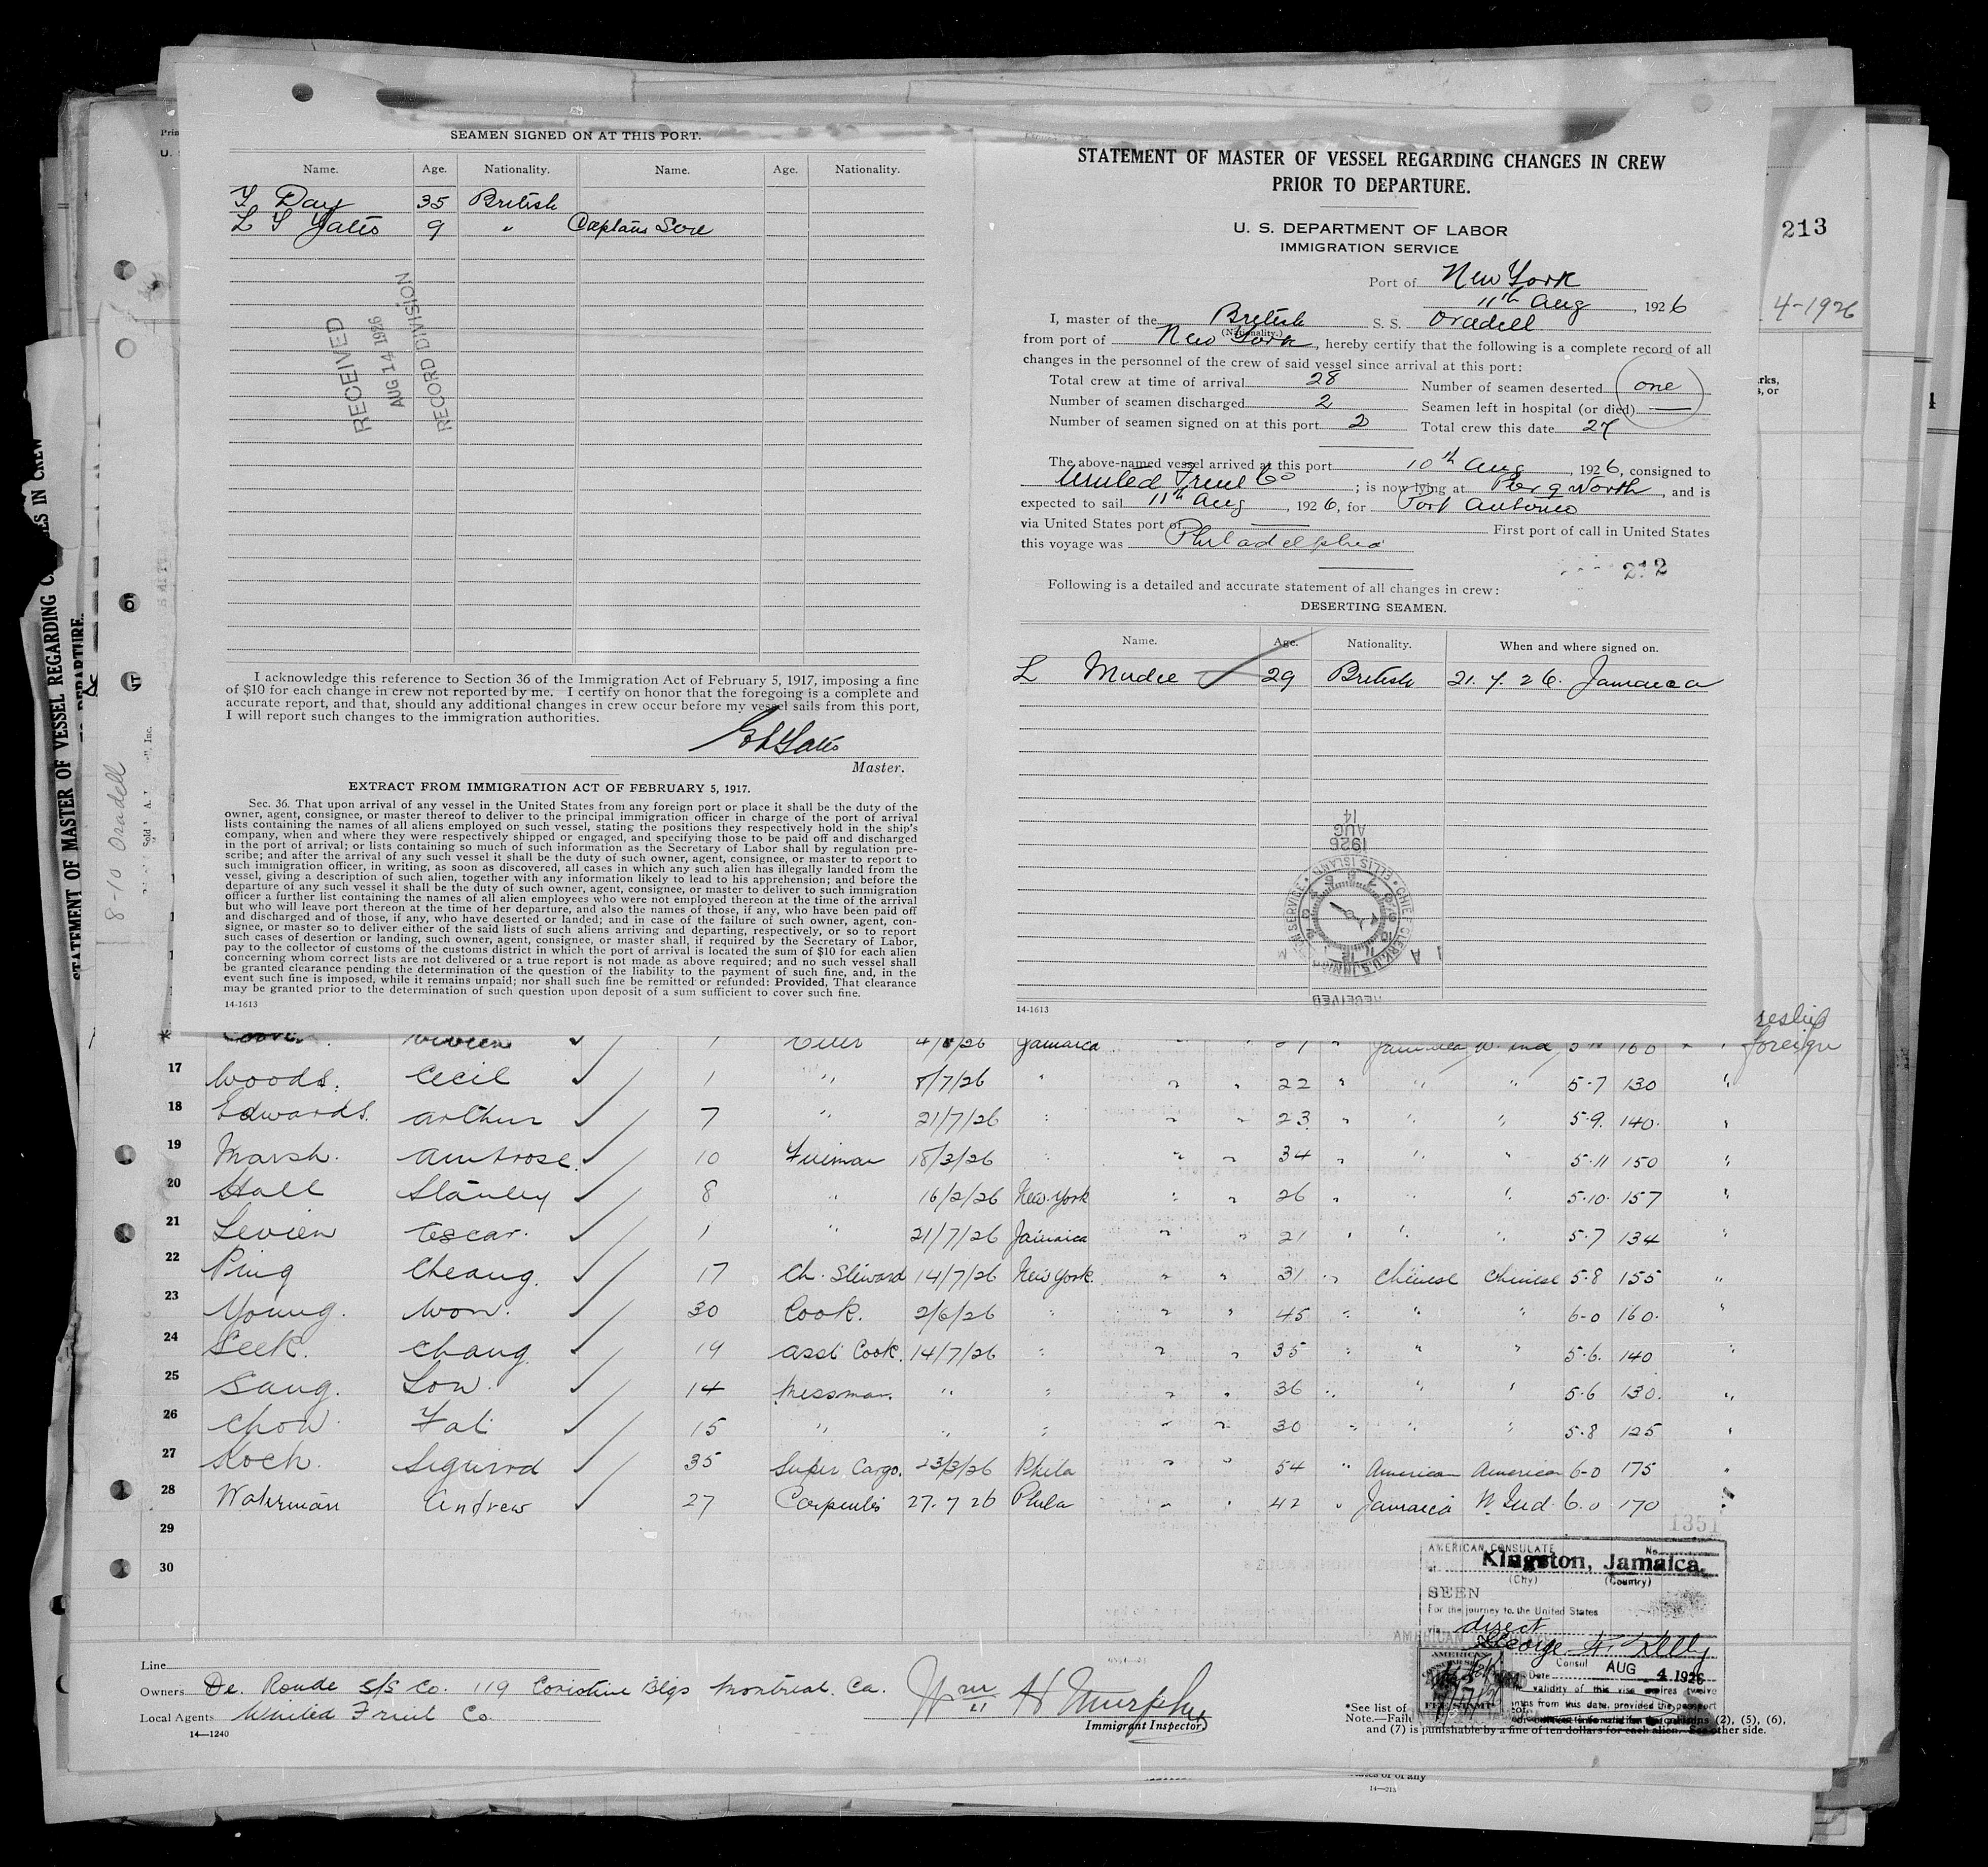 SEAMEN SIGNED ON AT THIS PORT.
Name. Age. Nationality. Name. Age. Nationality.
Day 35 British
L S Yates 9 " Captains Son
RECEIVED
AUG 14 1926
RECORD DIVISION
I acknowledge this reference to Section 36 of the Immigration Act of February 5, 1917, imposing a fine
of $10 for each change in crew not reported by me. I certify on honor that the foregoing is a complete and
accurate report, and that, should any additional changes in crew occur before my vessel sails from this port,
I will report such changes to the immigration authorities.
Yates
Master.
EXTRACT FROM IMMIGRATION ACT OF FEBRUARY 5, 1917.
Sec. 36. That upon arrival of any vessel in the United States from any foreign port or place it shall be the duty of the
owner, agent, consignee, or master thereof to deliver to the principal immigration officer in charge of the port of arrival
lists containing the names of all aliens employed on such vessel, stating the positions they respectively hold in the ship's
company, when and where they were respectively shipped or engaged, and specifying those to be paid off and discharged
in the port of arrival; or lists containing so much of such information as the Secretary of Labor shall by regulation pre-
scribe; and after the arrival of any such vessel it shall be the duty of such owner, agent, consignee, or master to report to
such immigration officer, in writing, as soon as discovered, all cases in which any such alien has illegally landed from the
vessel, giving a description of such alien, together with any information likely to lead to his apprehension; and before the
departure of any such vessel it shall be the duty of such owner, agent, consignee, or master to deliver to such immigration
officer a further list containing the names of all alien employees who were not employed thereon at the time of the arrival
but who will leave port thereon at the time of her departure, and also the names of those, if any, who have been paid off
and discharged and of those, if any, who have deserted or landed; and in case of the failure of such owner, agent, con-
signee, or master so to deliver either of the said lists of such aliens arriving and departing, respectively, or so to report
such cases of desertion or landing, such owner, agent, consignee, or master shall, if required by the Secretary of Labor,
pay to the collector of customs of the customs district in which the port of arrival is located the sum of $10 for each alien
concerning whom correct lists are not delivered or a true report is not made as above required; and no such vessel shall
be granted clearance pending the determination of the question of the liability to the payment of such fine, and, in the
event such fine is imposed, while it remains unpaid; nor shall such fine be remitted or refunded: Provided, That clearance
may be granted prior to the determination of such question upon deposit of a sum sufficient to cover such fine.
14-1613
STATEMENT OF MASTER OF VESSEL REGARDING CHANGES IN CREW
PRIOR TO DEPARTURE.
U. S. DEPARTMENT OF LABOR
IMMIGRATION SERVICE
Port of New York
11th Aug, 1926
I, master of the British S. S. Oradell
(Nationality.)
from port of New York, hereby certify that the following is a complete record of all
changes in the personnel of the crew of said vessel since arrival at this port:
Total crew at time of arrival 28 Number of seamen deserted one
Number of seamen discharged 2 Seamen left in hospital (or died) —
Number of seamen signed on at this port 2 Total crew this date 27
The above-named vessel arrived at this port 10th Aug, 1926, consigned to
United Fruit Co; is now lying at Pier 9 North, and is
expected to sail 11th Aug, 1926, for Port Antonio
via United States port of — First port of call in United States
this voyage was Philadelphia
212
Following is a detailed and accurate statement of all changes in crew:
DESERTING SEAMEN.
Name. Age. Nationality. When and where signed on.
L Mudie 29 British 21.7.26. Jamaica
1926
AUG
14
CHIEF CLERK, U.S. IMMIGRATION SERVICE • ELLIS ISLAND
RECEIVED
14-1613
213
4-1926
STATEMENT OF MASTER OF VESSEL REGARDING
8-10 Oradell
foreign
17 Woods. Cecil 1 " 8/7/26 " " " 22 " " " 5-7 130 "
18 Edwards. Arthur 7 " 21/7/26 " " " 23 " " " 5-9. 140. "
19 Marsh. Ambrose. 10 Fireman 18/3/26 " " " 34 " " " 5-11 150 "
20 Hall Stanley 8 " 16/2/26 New York " " 26 " " " 5-10. 157 "
21 Levien Oscar. 1 " 21/7/26 Jamaica " " 21 " " " 5-7 134 "
22 Ping Cheang. 17 Ch. Steward 14/7/26 New York. " " 31 " Chinese Chinese 5-8 155 "
23 Young. Won. 30 Cook. 2/6/26 " " " 45 " " " 6-0 160. "
24 Seek. Chang 19 Asst Cook. 14/7/26 " " " 35 " " " 5-6. 140 "
25 Sang. Low. 14 Messman. " " " " 36 " " " 5-6 130. "
26 Chow Fat 15 " " " " " 30 " " " 5-8 125 "
27 Koch. 35 Super Cargo. Phila " " 54 " American American 6-0 175 "
28 Waterman Andrew 27 Carpenter 27.7 26 Phila " " 42 " Jamaica W. Ind 6.0 170 "
29
30
1351
AMERICAN CONSULATE No.
at Kingston, Jamaica.
(City) (Country)
SEEN
For the journey to the United States
via direct
Consul
Date AUG 4 1926
Line
Owners De. Ronde S/S Co. 119 Coristine Blgs Montreal. Ca.
Local Agents United Fruit Co
14—1240
Wm H Murphy
Immigrant Inspector
*See list of
and (7) is punishable by a fine of ten dollars for each alien. See other side.